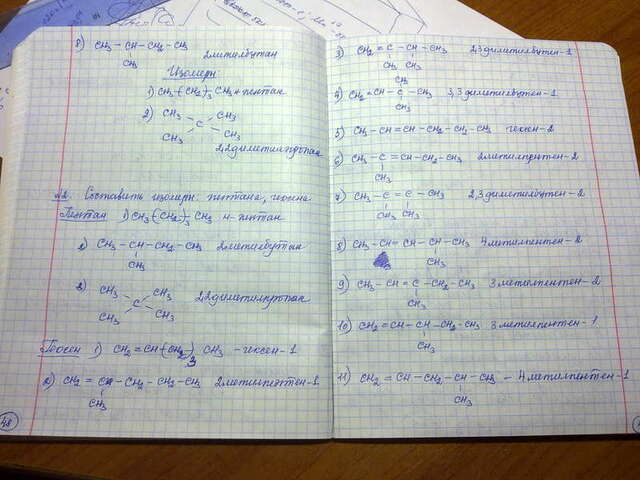 8) CH3 – CH – CH2 – CH3
CH3
2 метилбутан
Изомеры
1) CH3 – (CH2)3 CH3 н – пентан
2) CH3 CH3
C
CH3 CH3
2,2 диметилпропан
№2. Составить изомеры: пентана, гексена
Пентан 1) CH3 (CH2)3 CH3 н – пентан
2) CH3 – CH – CH2 – CH3 2 метилбутан
CH3
3) CH3 CH3
C
CH3 CH3
2,2 диметилпропан
Гексен 1) CH2 = CH – (CH2)3 CH3 – гексен – 1
2) CH2 = CH – CH2 – CH2 – CH3 2 метилпентен – 1
CH3
48
3) CH2 = C – CH – CH3 2,3 диметилбутен – 1
CH3 CH3
CH3
4) CH2 = CH – C – CH3 3,3 диметилбутен – 1
CH3
5) CH3 – CH = CH – CH2 – CH2 – CH3 гексен – 2
6) CH3 – C = CH – CH2 – CH3 2 метилпентен – 2
CH3
7) CH3 – C = C – CH3 2,3 диметилбутен – 2
CH3 CH3
8) CH3 – CH = CH – CH – CH3 4 метилпентен – 2
CH3
9) CH3 – CH = C – CH2 – CH3 3 метилпентен – 2
CH3
10) CH2 = CH – CH – CH2 – CH3 3 метилпентен – 1
CH3
11) CH2 = CH – CH2 – CH – CH3 – 4 метилпентен – 1
CH3